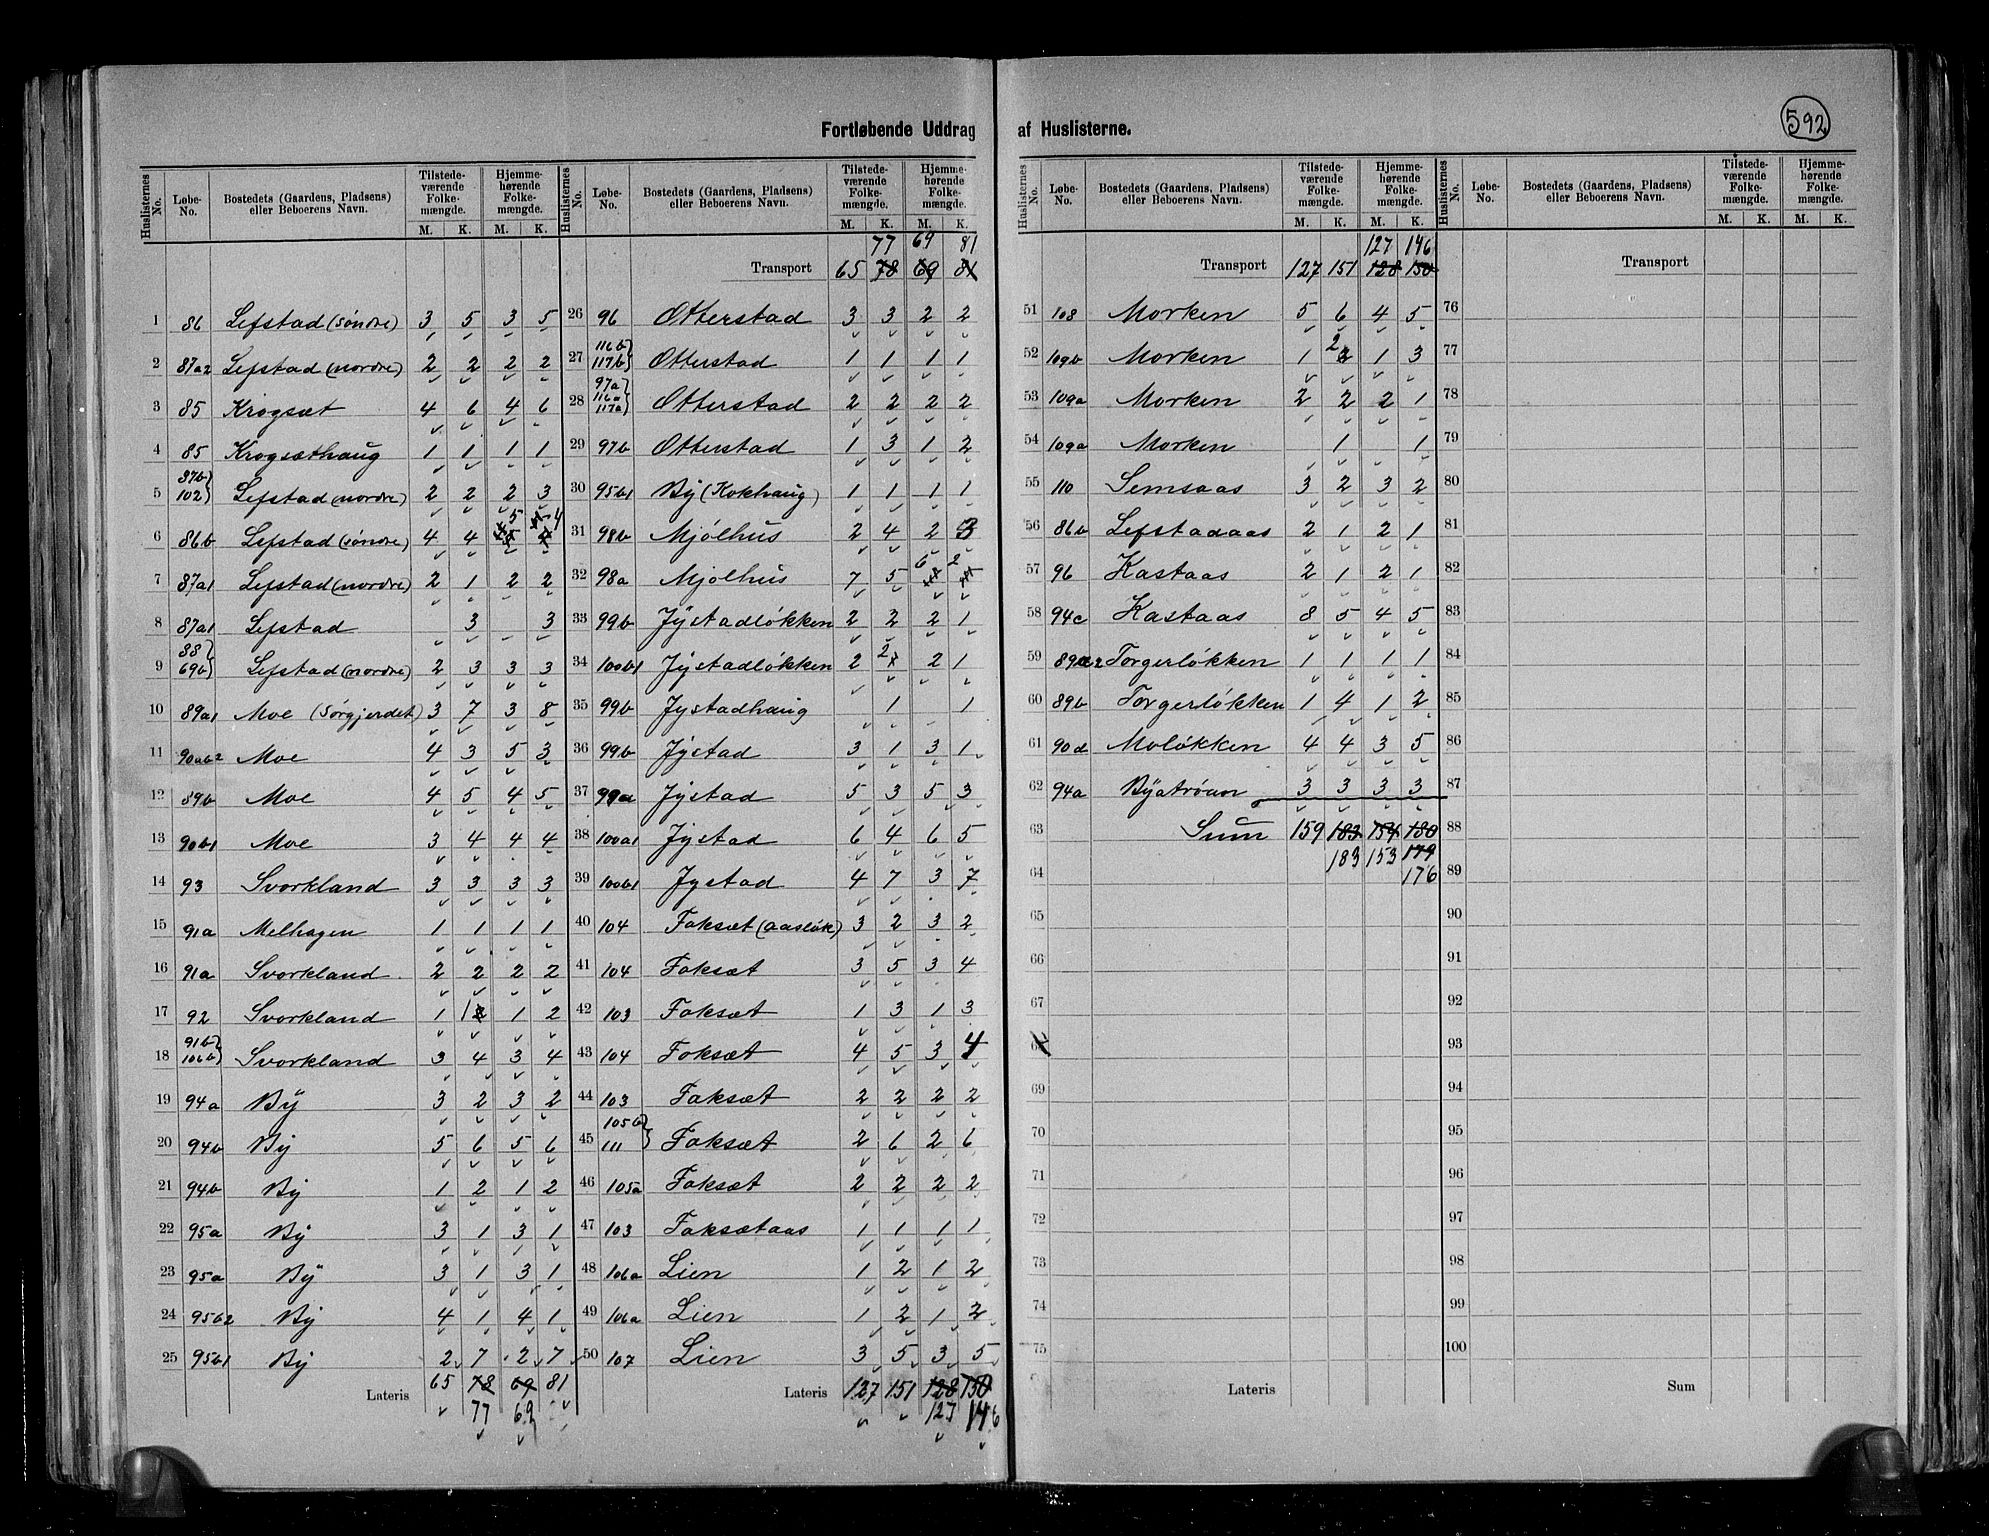 592
Fortløbende Uddrag af Huslisterne.
Huslisternes No. Løbe-No. Bostedets (Gaardens, Pladsens) eller Beboerens Navn. Tilstedeværende Folkemængde. M. K. Hjemmehørende Folkemængde. M. K.
1 86 Lefstad (söndre) 3 5 3 5
2 87a2 Lefstad (nordre) 2 2 2 2
3 85 Krogsæt 4 6 4 6
4 85 Krogsæthaug 1 1 1 1
5 87b 102 Lefstad (nordre) 2 2 2 3
6 86b Lefstad (söndre) 4 4 5 4
7 87a1 Lefstad (nordre) 2 1 2 2
8 87a1 Lefstad 3 3
9 88 69b Lefstad (nordre) 2 3 3 3
10 89a1 Moe (Sörgjerdet) 3 7 3 8
11 90ab2 Moe 4 3 5 3
12 89b Moe 4 5 4 5
13 90b1 Moe 3 4 4 4
14 93 Svorkland 3 3 3 3
15 91a Melhagen 1 1 1 1
16 91a Svorkland 2 2 2 2
17 92 Svorkland 1 1 1 2
18 91b 106b Svorkland 3 4 3 4
19 94a By 3 2 3 2
20 94b By 5 6 5 6
21 94b By 1 2 1 2
22 95a By 3 1 3 1
23 95a By 3 1 3 1
24 95b2 By 4 1 4 1
25 95b1 By 2 7 2 7
Lateris 65 78 69 81
77 69
77 69 81
Transport 65 78 69 81
26 96 Otterstad 3 3 2 2
27 116b 117b Otterstad 1 1 1 1
28 97a 116a 117a Otterstad 2 2 2 2
29 97b Otterstad 1 3 1 2
30 95b1 By (Kokhaug) 1 1 1 1
31 98b Mjölhus 2 4 2 3
32 98a Mjölhus 7 5 6 2
33 99b Jystadlökken 2 2 2 1
34 100b1 Jystadlökken 2 2 2 1
35 99b Jystadhaug 1 1
36 99b Jystad 3 1 3 1
37 99a Jystad 5 3 5 3
38 100a1 Jystad 6 4 6 5
39 100b1 Jystad 4 7 3 7
40 104 Foksæt (aaslök) 3 2 3 2
41 104 Foksæt 3 5 3 4
42 103 Foksæt 1 3 1 3
43 104 Foksæt 4 5 3 4
44 103 Foksæt 2 2 2 2
45 105b 111 Foksæt 2 6 2 6
46 105a Foksæt 2 2 2 2
47 103 Foksætaas 1 1 1 1
48 106a Lien 1 2 1 2
49 106a Lien 1 2 1 2
50 107 Lien 3 5 3 5
Lateris 127 151 128 150
127 146
Huslisternes No. Løbe-No. Bostedets (Gaardens, Pladsens) eller Beboerens Navn. Tilstedeværende Folkemængde. M. K. Hjemmehørende Folkemængde. M. K.
127 146
Transport 127 151 128 150
51 108 Morken 5 6 4 5
52 109b Morken 1 2 1 3
53 109a Morken 2 2 2 1
54 109a Morken 1 1
55 110 Semsaas 3 2 3 2
56 86b Lefstadaas 2 1 2 1
57 96 Kastaas 2 1 2 1
58 94c Kastaas 8 5 4 5
59 89a2 Torgerlökken 1 1 1 1
60 89b Torgerlökken 1 4 1 2
61 90d Molökken 4 4 3 5
62 94a Byatröen 3 3 3 3
63 Sum 159 183 154 180
183 153 179
64 176
65
66
67
68
69
70
71
72
73
74
75
Lateris
Transport
76
77
78
79
80
81
82
83
84
85
86
87
88
89
90
91
92
93
94
95
96
97
98
99
100
Sum